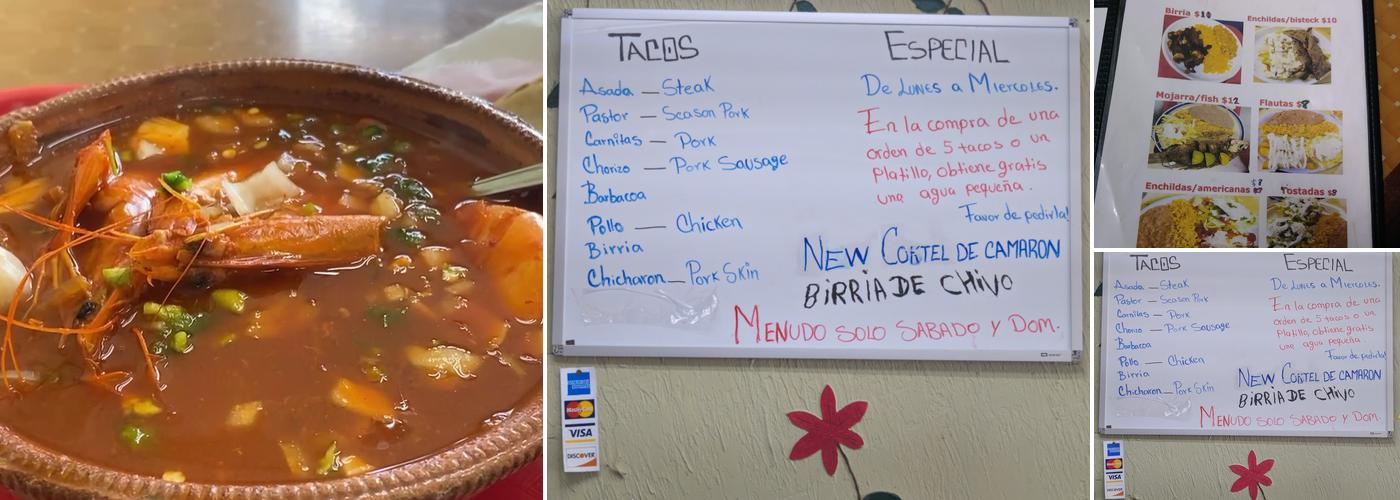 TACOS
Asada — Steak
Pastor — Season Pork
Carnitas — Pork
Chorizo — Pork Sausage
Barbacoa
Pollo — Chicken
Birria
Chicharon — Pork Skin
ESPECIAL
De LUNES a MIERCOLES.
En la compra de una
orden de 5 tacos o un
Platillo, obtiene gratis
una agua pequeña.
Favor de pedirla!
NEW COKTEL DE CAMARON
BIRRIA DE CHIVO
MENUDO SOLO SABADO Y DOM.
AMERICAN EXPRESS
MasterCard
VISA
DISCOVER
Birria $10
Enchildas/bisteck $10
Mojarra/fish $12
Flautas $8
Enchildas/americanas $8
Tostadas $8
TACOS
Asada — Steak
Pastor — Season Pork
Carnitas — Pork
Chorizo — Pork Sausage
Barbacoa
Pollo — Chicken
Birria
Chicharon — Pork Skin
ESPECIAL
De LUNES a MIERCOLES.
En la compra de una
orden de 5 tacos o un
Platillo, obtiene gratis
una agua pequeña.
Favor de pedirla!
NEW COKTEL DE CAMARON
BIRRIA DE CHIVO
MENUDO SOLO SABADO Y DOM.
MasterCard
VISA
DISCOVER